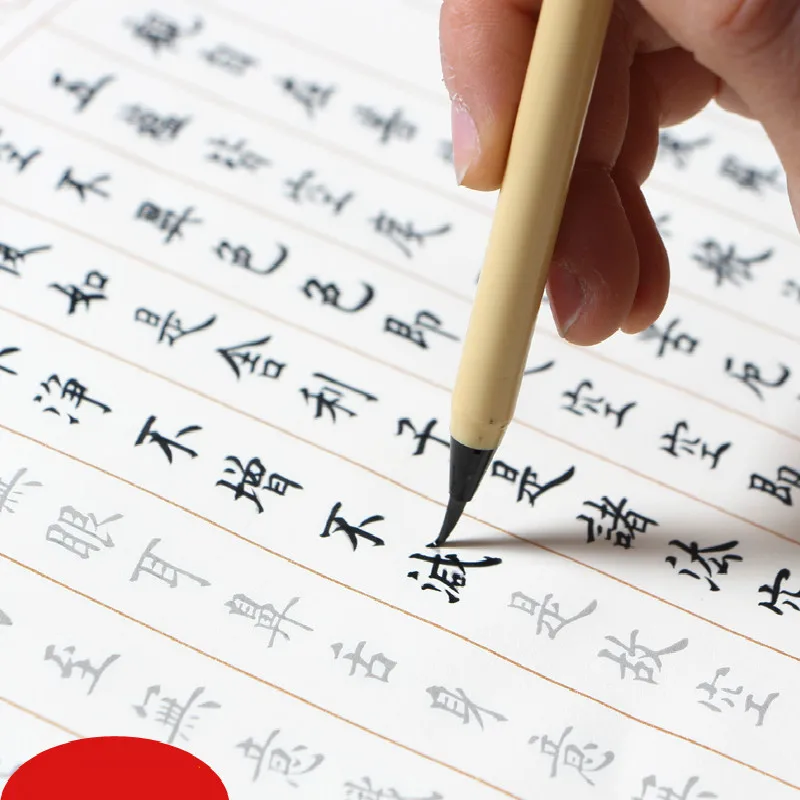 觀自在菩
五蘊皆空度 苦厄
空不異色色即 空空即
復如是舍利子是諸法空
不淨不增不減是故空
無眼耳鼻舌身意
至無意識